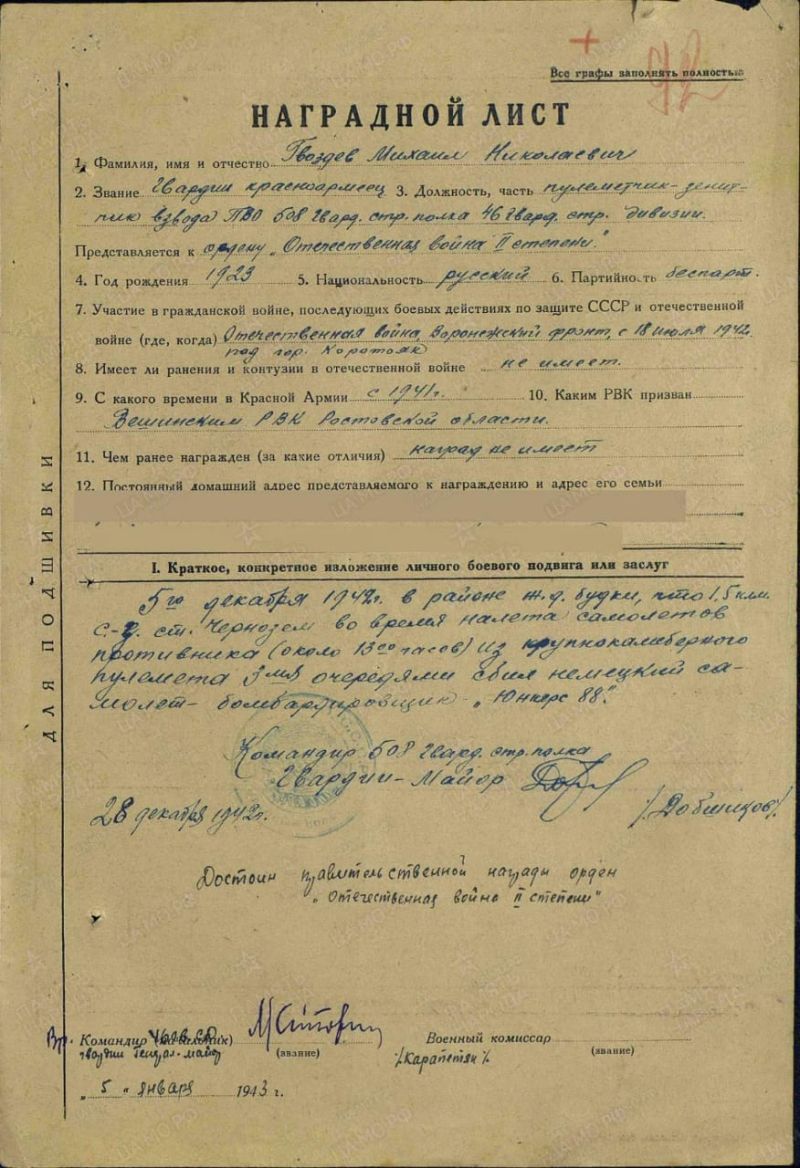 92
Все графы заполнять полностью
НАГРАДНОЙ ЛИСТ
1. Фамилия, имя и отчество Гвоздев Михаил Николаевич
2. Звание Гвардии красноармеец 3. Должность, часть пулеметчик-зенит-
чик взвода ПВО 608 Гвард. стр. полка 46 Гвард. стр. дивизии.
Представляется к ордену „Отечественная война II степени."
4. Год рождения 1923 5. Национальность русский 6. Партийность беспарт.
7. Участие в гражданской войне, последующих боевых действиях по защите СССР и отечественной
войне (где, когда) Отечественная война, Воронежский фронт, с 18 июля 1942
под гор. Коротояк
8. Имеет ли ранения и контузии в отечественной войне не имеет.
9. С какого времени в Красной Армии с 1941г. 10. Каким РВК призван
Вешинским РВК Ростовской области.
11. Чем ранее награжден (за какие отличия) наград не имеет
12. Постоянный домашний адрес представляемого к награждению и адрес его семьи
I. Краткое, конкретное изложение личного боевого подвига или заслуг
5го декабря 1942г. в районе ж.д. будки, что 1,5 клм.
ст. Чернозем во время налета самолетов
противника (около 13 00 часов) из крупнокалиберного
пулемета 3мя очередями сбил немецкий са-
молет-бомбардировщик - „Юнкерс 88."
Командир 608 Гвард. стр. полка
Гвардии-Майор
28 декабря 1942г.
Достоин правительственной награды орден
„Отечественная война II степени"
Вр. Командир
(звание)
гвардии генерал-майор
Военный комиссар
(звание)
/Карапетян/
„5" января 1943 г.
ДЛЯ ПОДШИВКИ